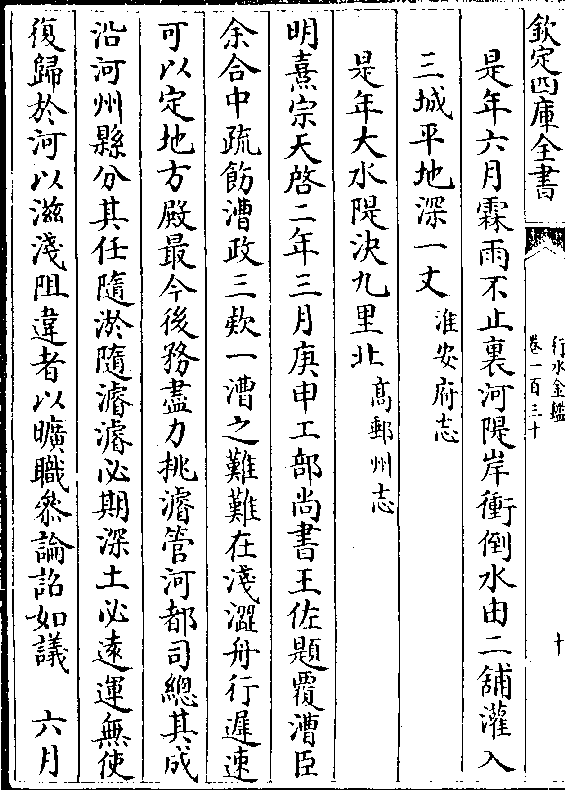 欽定四庫全書
行水金鑑
卷一百三十
十
是年六月霖雨不止裏河隄岸衝倒水由二舖灌入
三城平地深一丈淮安府志
是年大水隄決九里北高郵州志
明熹宗天啓二年三月庚申工部尚書王佐題覆漕臣
余合中疏飭漕政三欵一漕之難難在淺澀舟行遲速
可以定地方殿最今後務盡力挑濬管河都司總其成
沿河州縣分其任隨淤隨濬濬必期深土必遠運無使
復歸於河以滋淺阻違者以曠職叅論詔如議　六月